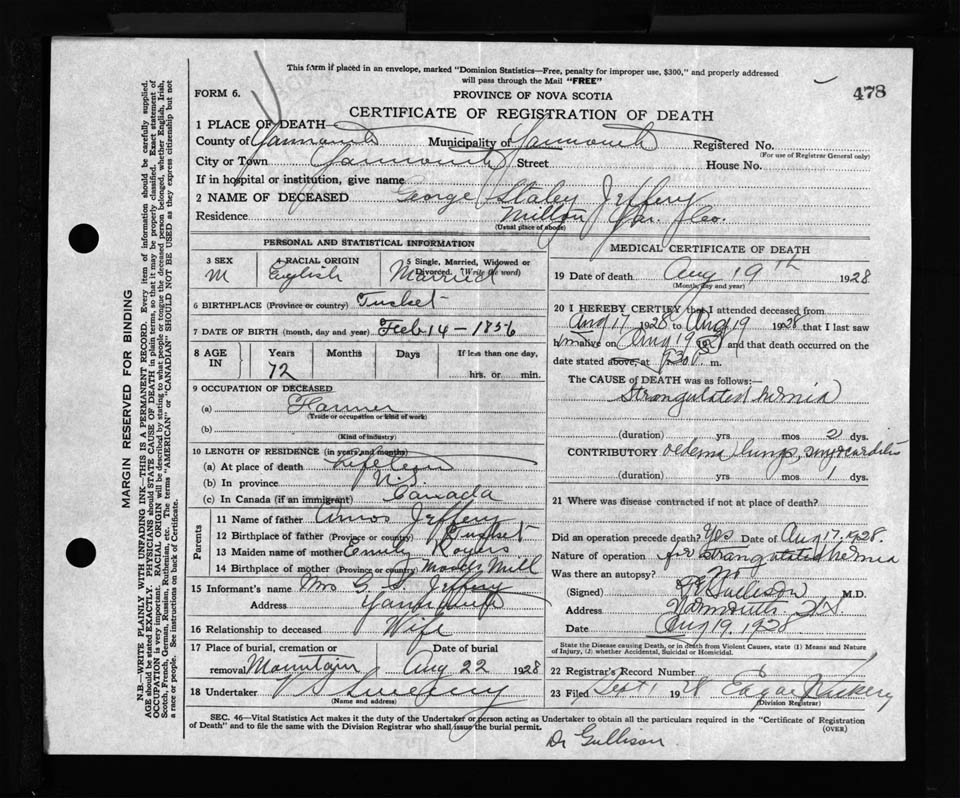 This form if placed in an envelope, marked "Dominion Statistics—Free, penalty for improper use, $300," and properly addressed
will pass through the Mail "FREE"
FORM 6.
PROVINCE OF NOVA SCOTIA
478
CERTIFICATE OF REGISTRATION OF DEATH
1 PLACE OF DEATH—
County of Yarmouth Municipality of Yarmouth Registered No.
(For use of Registrar General only)
City or Town Yarmouth Street House No.
If in hospital or institution, give name
2 NAME OF DECEASED George Staley Jeffery
Residence Milton Yar. Co.
(Usual place of abode)
PERSONAL AND STATISTICAL INFORMATION
3 SEX M
4 RACIAL ORIGIN English
5 Single, Married, Widowed or Divorced. (Write the word) Married
6 BIRTHPLACE (Province or country) Tusket
7 DATE OF BIRTH (month, day and year) Feb 14 - 1856
8 AGE IN Years Months Days If less than one day,
72 hrs. or min.
9 OCCUPATION OF DECEASED
(a) Farmer
(Trade or occupation or kind of work)
(b)
(Kind of industry)
10 LENGTH OF RESIDENCE (in years and months)
(a) At place of death Lifetime
(b) In province N.S.
(c) In Canada (if an immigrant) Canada
Parents
11 Name of father Amos Jeffery
12 Birthplace of father (Province or country) Tusket
13 Maiden name of mother Emily Rogers
14 Birthplace of mother (Province or country) Mill
15 Informant's name Mrs G. S. Jeffery
Address Yarmouth
16 Relationship to deceased Wife
17 Place of burial, cremation or removal Mountain
Date of burial Aug 22 1928
18 Undertaker V S Sweeny
(Name and address)
MEDICAL CERTIFICATE OF DEATH
19 Date of death Aug 19th 1928
(Month, day and year)
20 I HEREBY CERTIFY that I attended deceased from
Aug 17 1928 to Aug 19 1928 that I last saw
him alive on Aug 19 1928 and that death occurred on the
date stated above, at 130 P. m.
The CAUSE of DEATH was as follows:—
Strangulated hernia
(duration) yrs mos 2 dys.
CONTRIBUTORY oedema lungs, myocarditis
(duration) yrs mos 1 dys.
21 Where was disease contracted if not at place of death?
Did an operation precede death? Yes Date of Aug 17, 1928.
Nature of operation for strangulated hernia
Was there an autopsy? no
(Signed) Gullison M.D.
Address Yarmouth N.S.
Date Aug 19, 1928
State the Disease causing Death, or in death from Violent Causes, state (1) Means and Nature of Injury, (2) whether Accidental, Suicidal or Homicidal.
22 Registrar's Record Number
23 Filed Sept 1 1928 Edgar
(Division Registrar)
SEC. 46—Vital Statistics Act makes it the duty of the Undertaker or person acting as Undertaker to obtain all the particulars required in the "Certificate of Registration
of Death" and to file the same with the Division Registrar who shall issue the burial permit.
(OVER)
Dr Gullison.
MARGIN RESERVED FOR BINDING
N.B.—WRITE PLAINLY WITH UNFADING INK—THIS IS A PERMANENT RECORD. Every item of information should be carefully supplied.
AGE should be stated EXACTLY. PHYSICIANS should STATE CAUSE OF DEATH in plain terms, so that it may be properly classified. Exact statement of
OCCUPATION is very important. RACIAL ORIGIN will be described by stating to what people or tongue the deceased person belonged, whether English, Irish,
Scotch, French, German, Russian, Ruthenian, etc. The terms "AMERICAN" or "CANADIAN" SHOULD NOT BE USED as they express citizenship but not
a race or people. See instructions on back of Certificate.